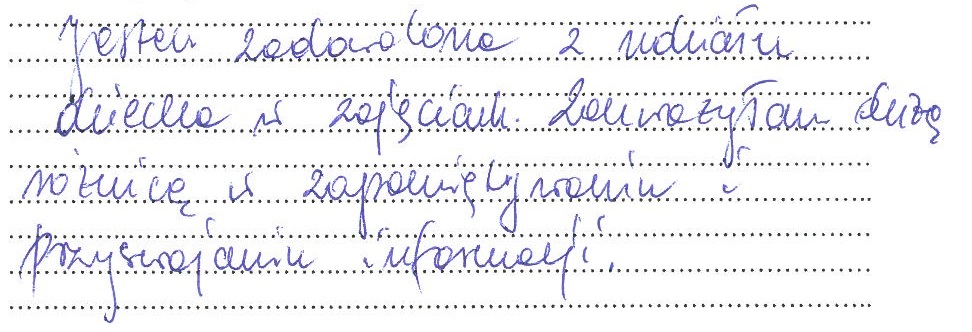 Jestem zadowolona z udziału
dziecka w zajęciach. Zauważyłam dużą
różnicę w zapamiętywaniu i
przyswajaniu informacji.